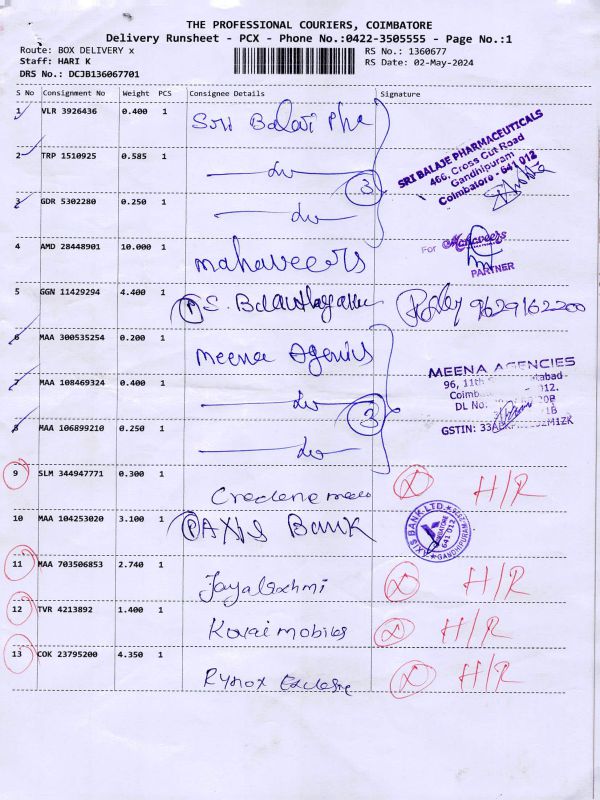 THE PROFESSIONAL COURIERS, COIMBATORE
Delivery Runsheet - PCX - Phone No.:0422-3505555 - Page No.:1
Route: BOX DELIVERY x RS No.: 1360677
Staff: HARI K RS Date: 02-May-2024
DRS No.: DCJB136067701
S No Consignment No Weight PCS Consignee Details Signature
1 VLR 3926436 0.400 1 Sri Balaji Pha
SRI BALAJE PHARMACEUTICALS
466, Cross Cut Road
Gandhipuram
Coimbatore - 641 012
2 TRP 1510925 0.585 1
3
3 GDR 5302280 0.250 1
4 AMD 28448901 10.000 1 mahaveers
For Mahaveers
PARTNER
5 GGN 11429294 4.400 1 P S. 9629162200
6 MAA 300535254 0.200 1 Meena Agencies
MEENA AGENCIES
96, 11th
012.
DL No: 20B
21B
GSTIN:
7 MAA 108469324 0.400 1
3
8 MAA 106899210 0.250 1
9 SLM 344947771 0.300 1 X H/R
10 MAA 104253020 3.100 1 P AXIS Bank
AXIS BANK LTD.
COIMBATORE
641 012
GANDHIPURAM
11 MAA 703506853 2.740 1 Jayalaxhmi X H/R
12 TVR 4213892 1.400 1 Kovai mobiles X H/R
13 COK 23795200 4.350 1 Rynox X H/R